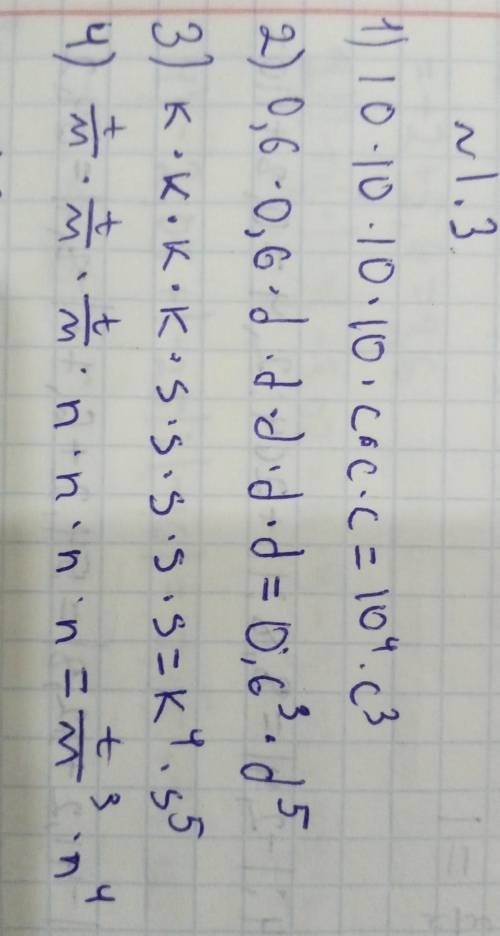 N1.3
1) 10·10·10·10·c·c·c=10⁴·c³
2) 0,6·0,6·d·d·d·d·d=0,6³·d⁵
3) k·k·k·k·s·s·s·s·s=k⁴·s⁵
4) t/m·t/m·t/m·n·n·n·n=t/m³·n⁴